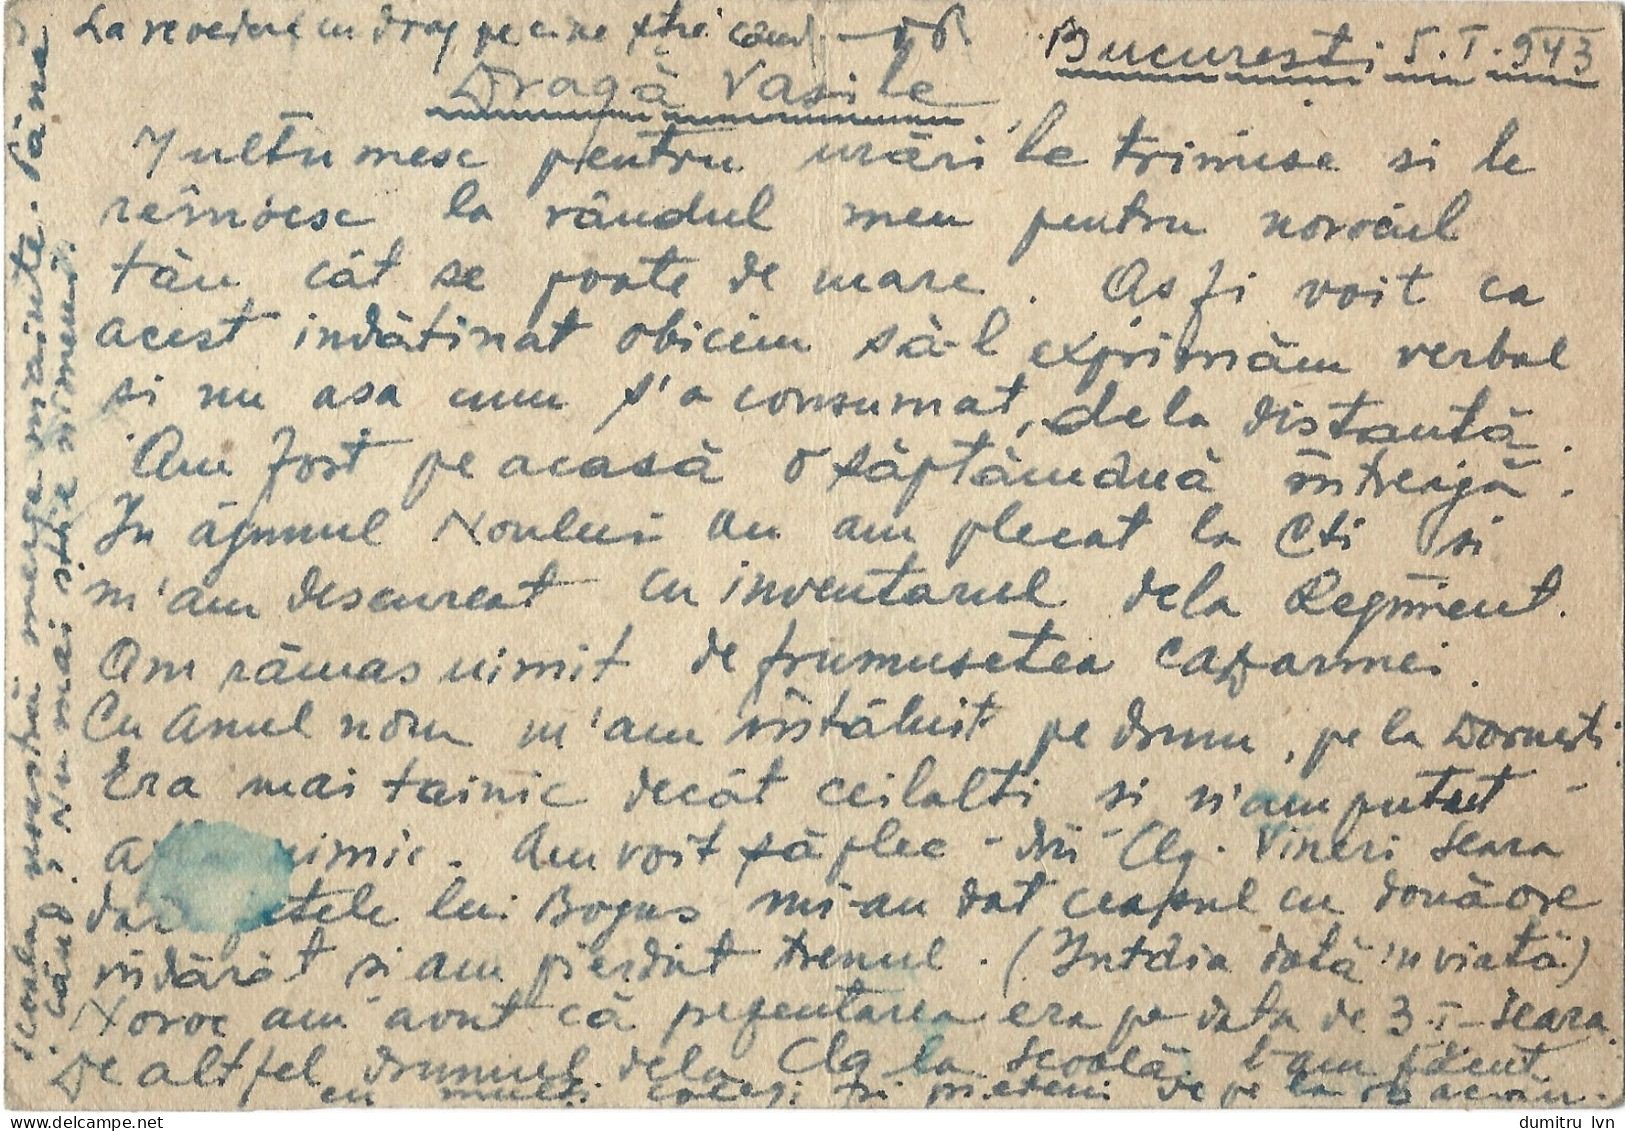 La revedere cu drag pe cine știi când.
București 5.I.943
Dragă Vasile,
Mulțumesc pentru urările trimise si le
reînoesc la rândul meu pentru norocul
tău cât se poate de mare. As fi voit ca
acest indătinat obiceiu să-l exprimăm verbal
si nu asa cum s'a consumat, dela distanță.
Am fost pe acasă o săptămână întreagă.
In ajunul Noului an am plecat la Cți si
m'am descurcat cu inventarul dela Regiment.
Am rămas uimit de frumusetea cazarmei.
Cu Anul nou m'am întâlnit pe drum, pe la Dornești.
Era mai tainic decât ceilalți si n'am putut
nimic. Am voit să plec din Clq. Vineri seara
dar fetele lui Bogus mi-au dat ceasul cu două ore
indărăt si am pierdut trenul. (Intâia dată in viată)
Noroc am avut că prezentarea era pe data de 3-I-seara.
De altfel drumul dela Clq la scoală l-am făcut
cu multi colegi si prieteni de pe la
scoala noastră merge inainte. Până
când? Nu mai stie nimeni.